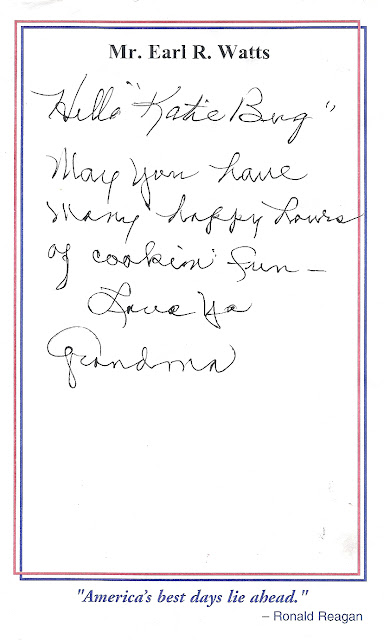 Mr. Earl R. Watts
Hello "Katie Bug"
May you have
many happy hours
of cookin' fun –
Love Ya
Grandma
"America's best days lie ahead."
– Ronald Reagan